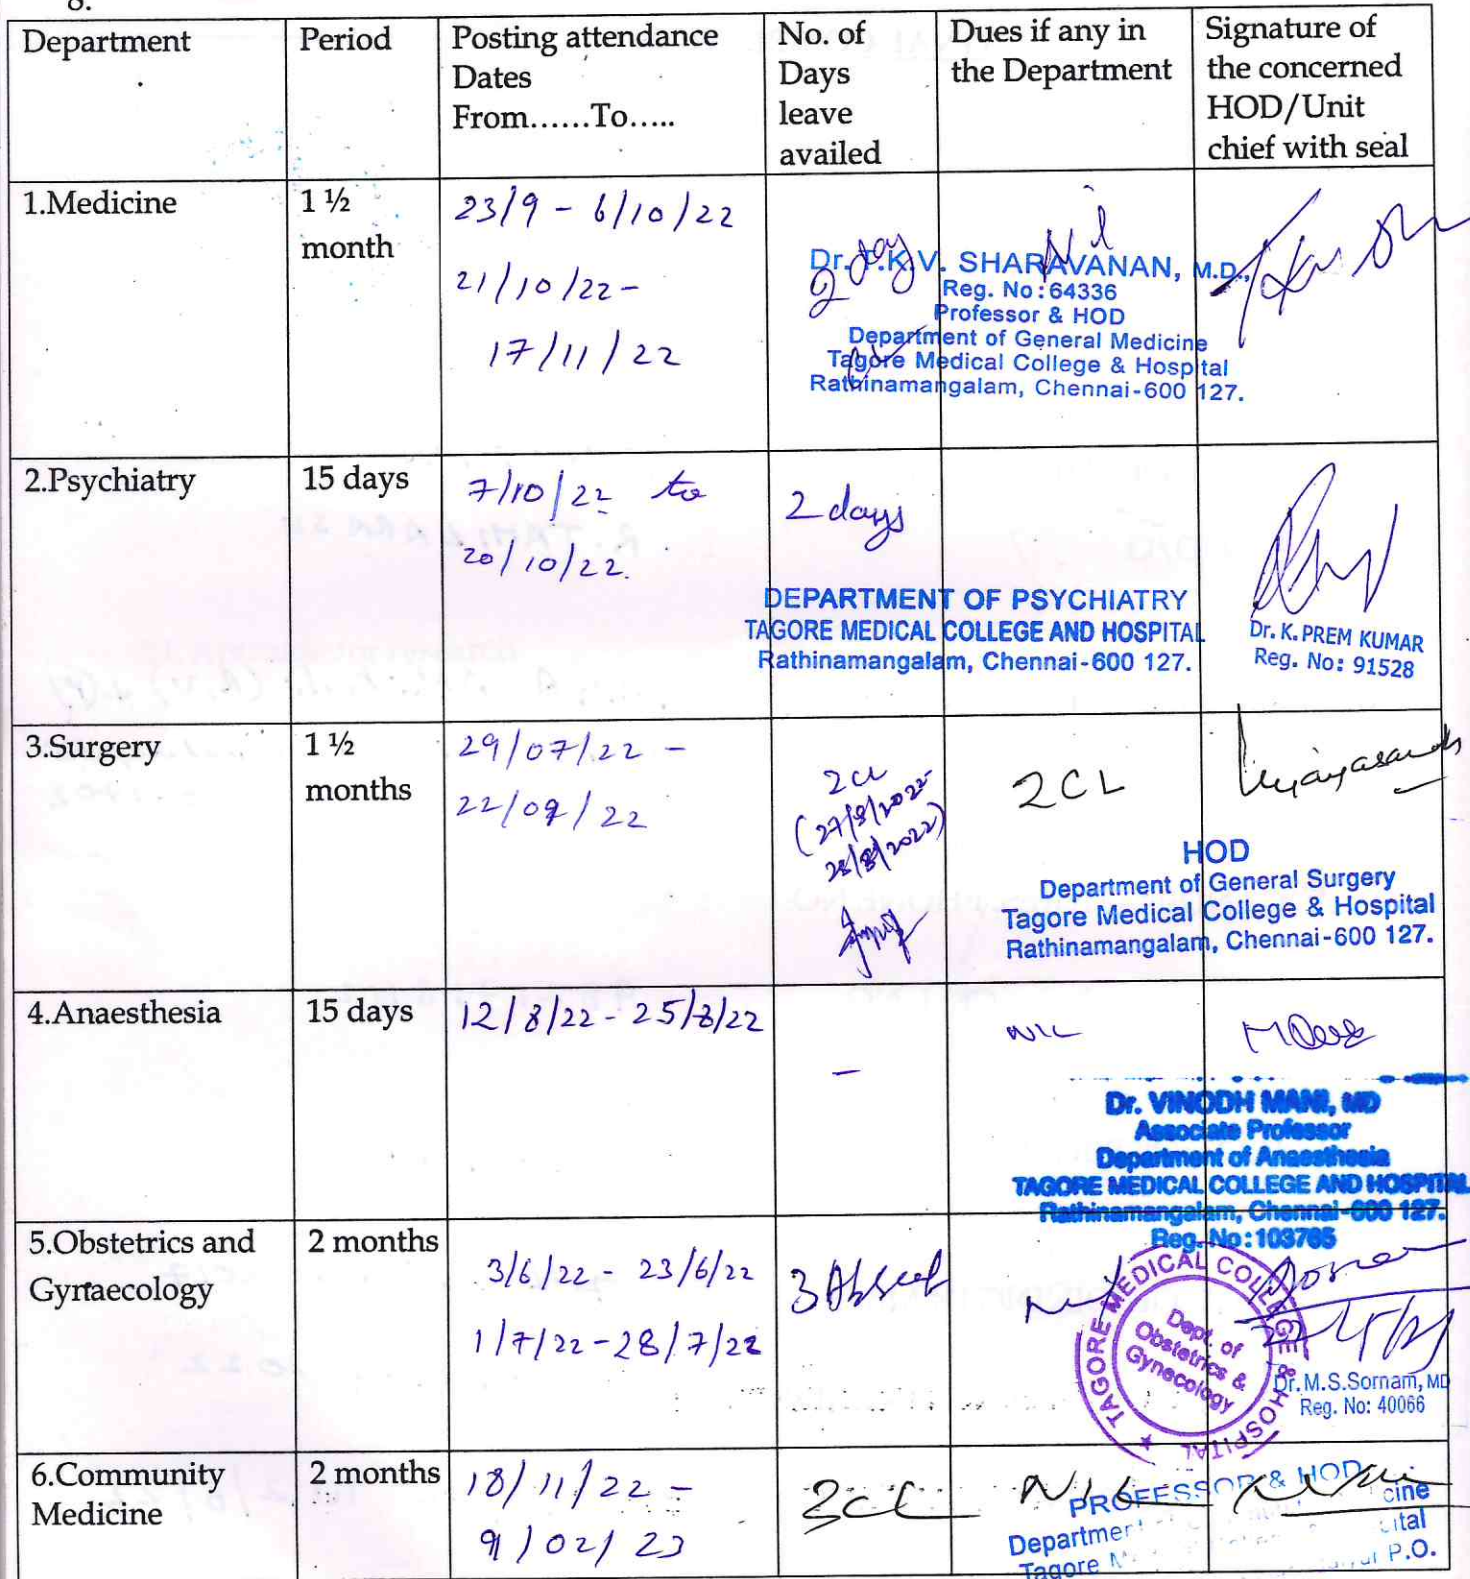 8.
Department
Period
Posting attendance
Dates
From......To.....
No. of
Days
leave
availed
Dues if any in
the Department
Signature of
the concerned
HOD/Unit
chief with seal
1.Medicine
1 ½
month
23/9 - 6/10/22
21/10/22 -
17/11/22
2 day
Nil
Dr. T.K.V. SHARAVANAN, M.D.,
Reg. No:64336
Professor & HOD
Department of General Medicine
Tagore Medical College & Hospital
Rathinamangalam, Chennai-600 127.
2.Psychiatry
15 days
7/10/22 to
20/10/22.
2 days
DEPARTMENT OF PSYCHIATRY
TAGORE MEDICAL COLLEGE AND HOSPITAL
Rathinamangalam, Chennai-600 127.
Dr. K. PREM KUMAR
Reg. No: 91528
3.Surgery
1 ½
months
29/07/22 -
22/09/22
2CL
(27/8/2022
28/8/2022)
2CL
HOD
Department of General Surgery
Tagore Medical College & Hospital
Rathinamangalam, Chennai-600 127.
4.Anaesthesia
15 days
12/8/22 - 25/8/22
-
NIL
Dr. VINODH MANI, MD
Associate Professor
Department of Anaesthesia
TAGORE MEDICAL COLLEGE AND HOSPITAL
Rathinamangalam, Chennai-600 127.
Reg. No:103765
5.Obstetrics and
Gynaecology
2 months
3/6/22 - 23/6/22
1/7/22 - 28/7/22
3 Absent
Nil
TAGORE MEDICAL COLLEGE & HOSPITAL
Dept. of
Obstetrics &
Gynecology
Dr. M.S.Sornam, MD
Reg. No: 40066
6.Community
Medicine
2 months
18/11/22 -
9/02/23
3CL
NIL
PROFESSOR & HOD
Tagore
P.O.